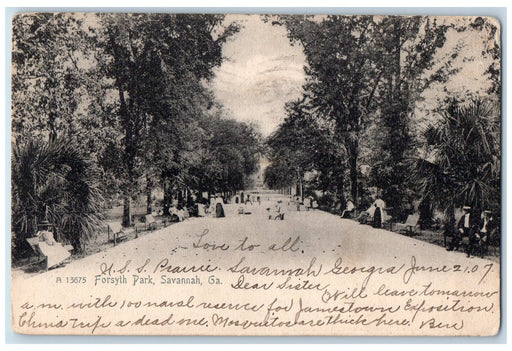 Love to all.
U.S.S. Prairie. Savannah Georgia June 2.07
A 13675 Forsyth Park, Savannah, Ga.
Dear Sister
Will leave tomorrow
a.m. with 100 naval reserve for Jamestown Exposition.
China trip a dead one. Mosquitos are thick here, Ben